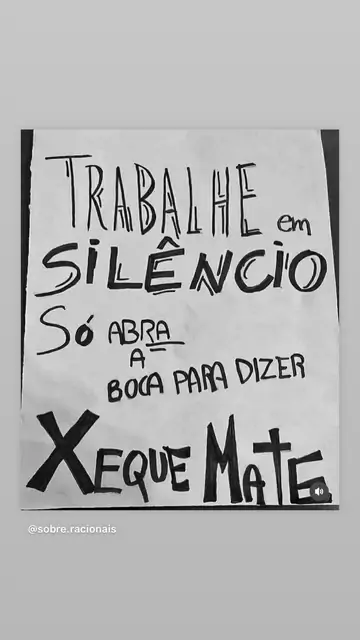 TRABALHE em
SILÊNCIO
Só ABRA
A
BOCA PARA DIZER
XEQUE MATE
@sobre.racionais